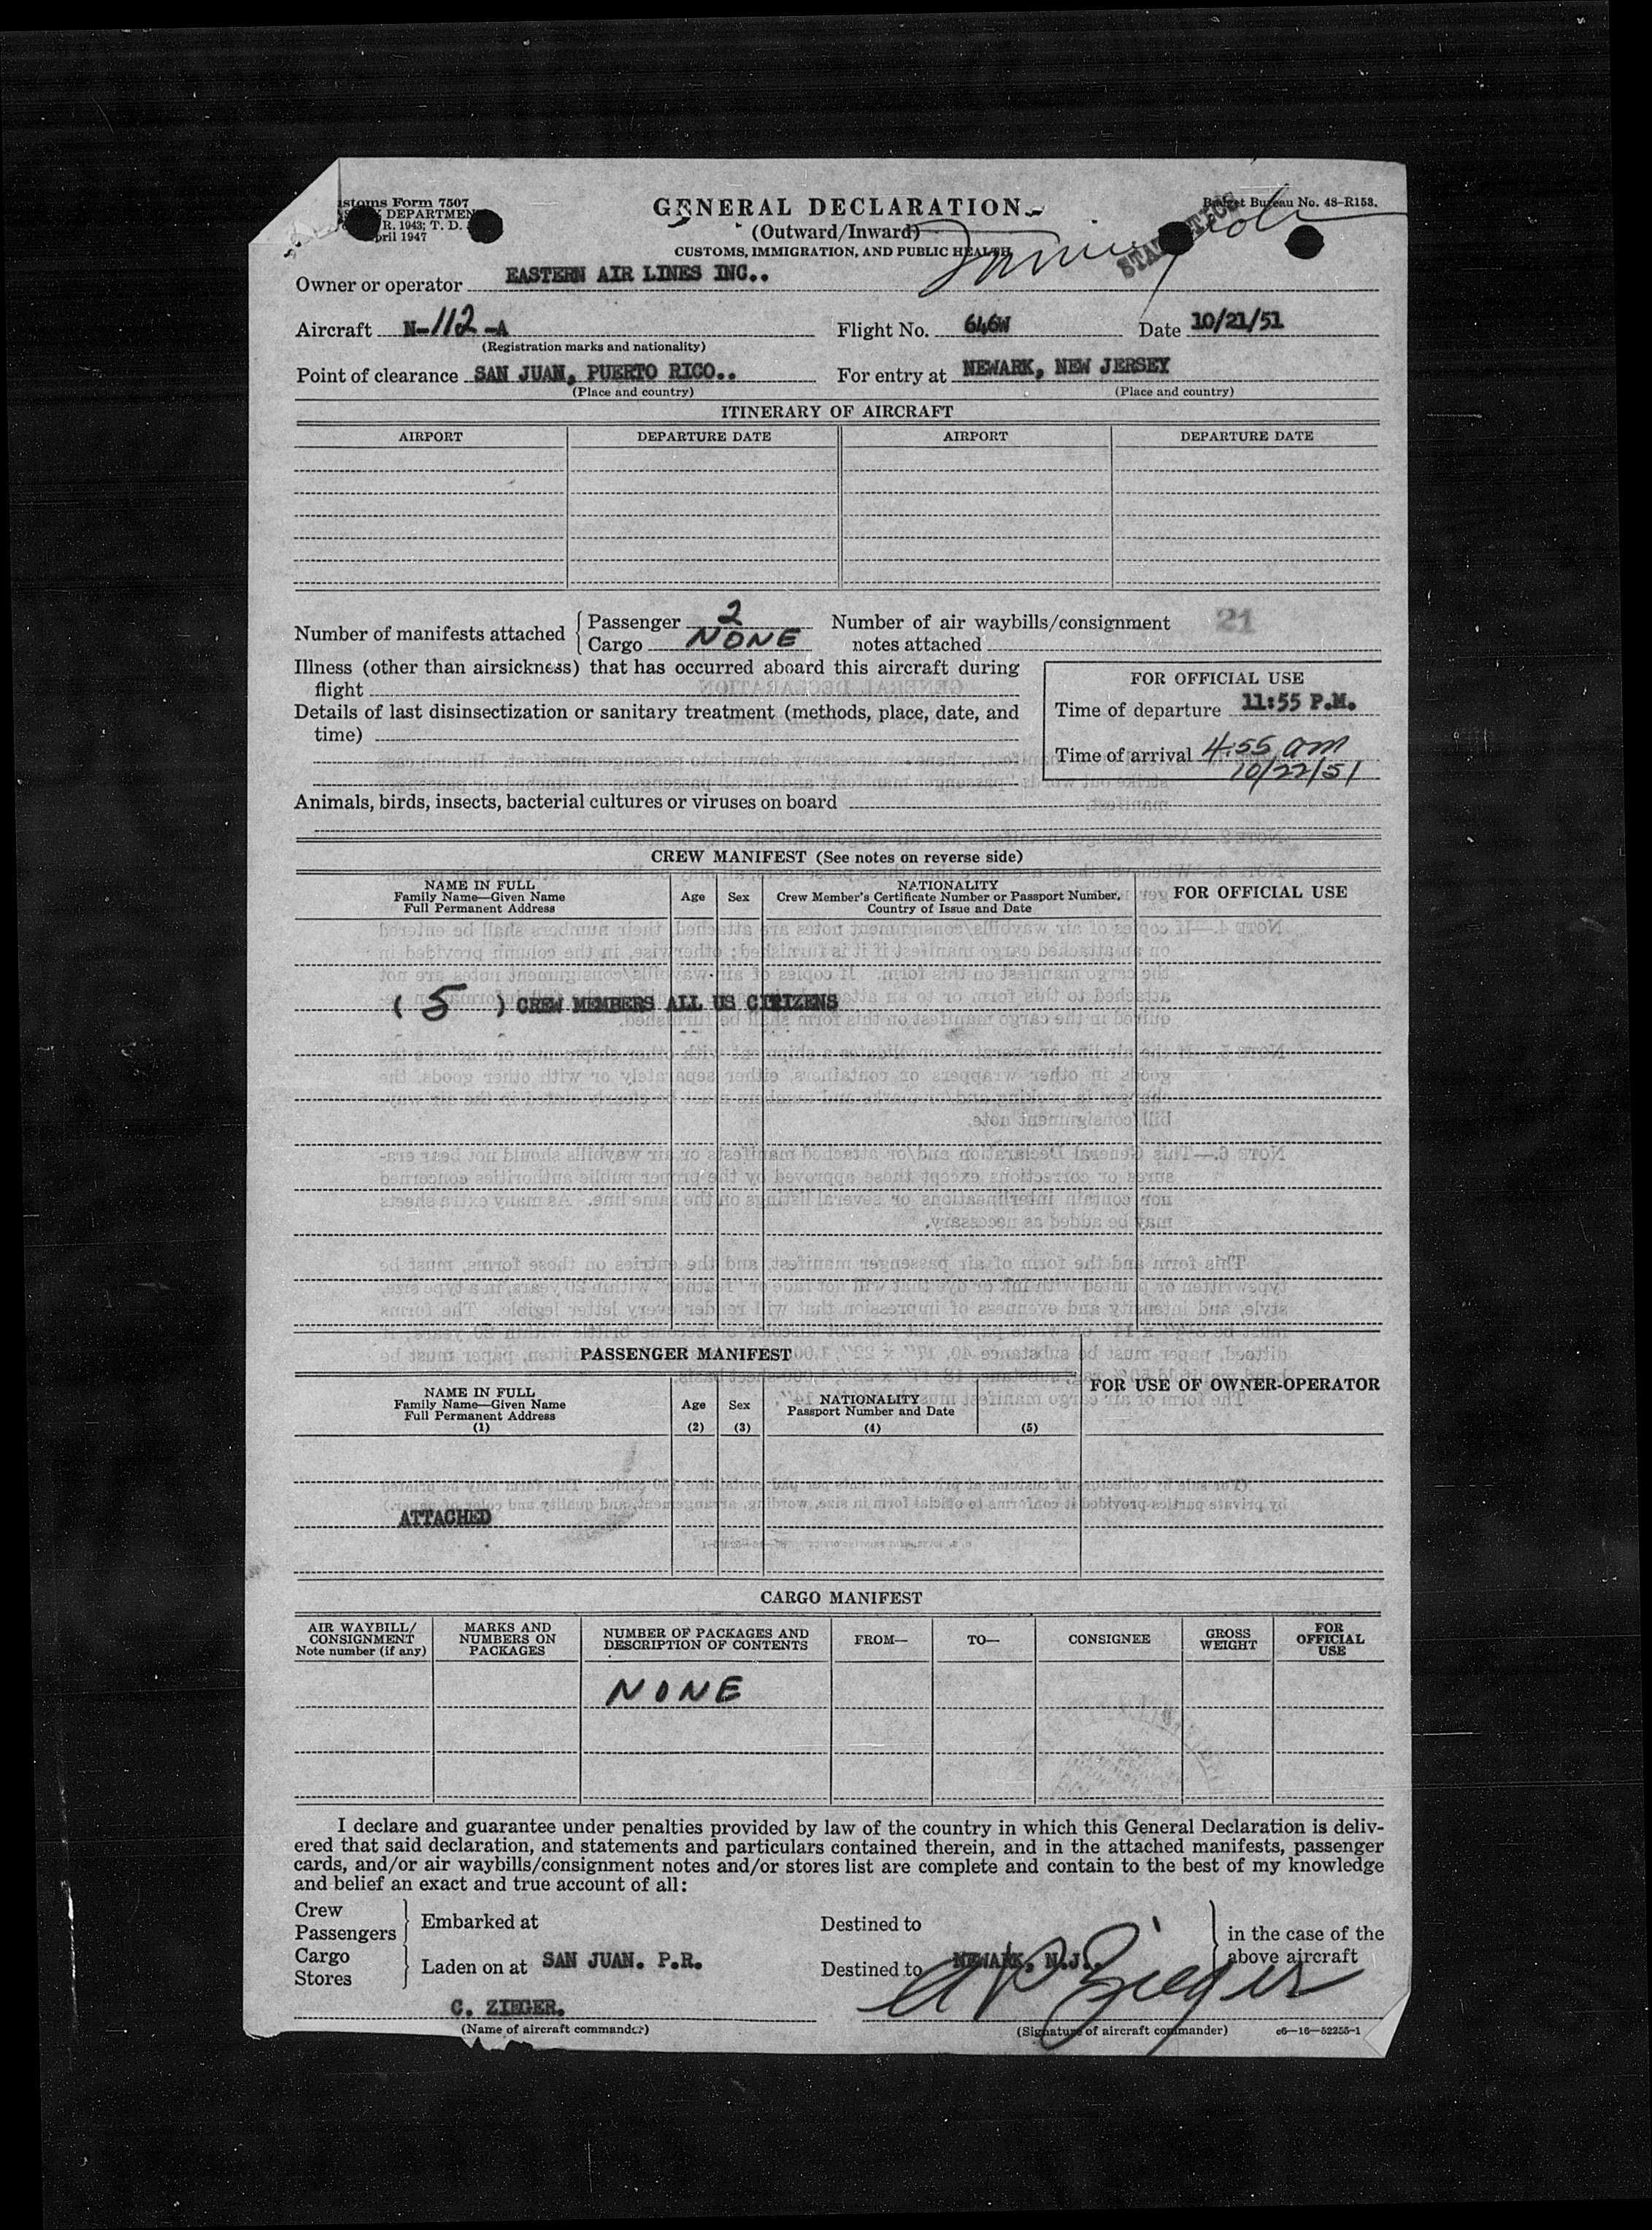 stoms Form 7507
DEPARTMEN
R. 1943; T. D.
pril 1947
GENERAL DECLARATION
(Outward/Inward)
CUSTOMS, IMMIGRATION, AND PUBLIC HEALTH
Budget Bureau No. 48-R153.
Owner or operator EASTERN AIR LINES INC..
Aircraft N-112-A Flight No. 646W Date 10/21/51
(Registration marks and nationality)
Point of clearance SAN JUAN, PUERTO RICO.. For entry at NEWARK, NEW JERSEY
(Place and country) (Place and country)
ITINERARY OF AIRCRAFT
AIRPORT DEPARTURE DATE AIRPORT DEPARTURE DATE
Number of manifests attached { Passenger 2 Number of air waybills/consignment 21
Cargo NONE notes attached
Illness (other than airsickness) that has occurred aboard this aircraft during
flight
Details of last disinsectization or sanitary treatment (methods, place, date, and
time)
FOR OFFICIAL USE
Time of departure 11:55 P.M.
Time of arrival 4:55 am
10/22/51
Animals, birds, insects, bacterial cultures or viruses on board
CREW MANIFEST (See notes on reverse side)
NAME IN FULL
Family Name—Given Name
Full Permanent Address
Age
Sex
NATIONALITY
Crew Member's Certificate Number or Passport Number,
Country of Issue and Date
FOR OFFICIAL USE
( 5 ) CREW MEMBERS ALL US CITIZENS
PASSENGER MANIFEST
NAME IN FULL
Family Name—Given Name
Full Permanent Address
(1)
Age
(2)
Sex
(3)
NATIONALITY
Passport Number and Date
(4)
(5)
FOR USE OF OWNER-OPERATOR
ATTACHED
CARGO MANIFEST
AIR WAYBILL/
CONSIGNMENT
Note number (if any)
MARKS AND
NUMBERS ON
PACKAGES
NUMBER OF PACKAGES AND
DESCRIPTION OF CONTENTS
FROM—
TO—
CONSIGNEE
GROSS
WEIGHT
FOR
OFFICIAL
USE
NONE
I declare and guarantee under penalties provided by law of the country in which this General Declaration is deliv-
ered that said declaration, and statements and particulars contained therein, and in the attached manifests, passenger
cards, and/or air waybills/consignment notes and/or stores list are complete and contain to the best of my knowledge
and belief an exact and true account of all:
Crew
Passengers
Cargo
Stores
Embarked at
Laden on at SAN JUAN. P.R.
Destined to
Destined to NEWARK, N.J.
in the case of the
above aircraft
C. ZIEGER.
(Name of aircraft commander)
Zieger
(Signature of aircraft commander)
c6—16—52255-1